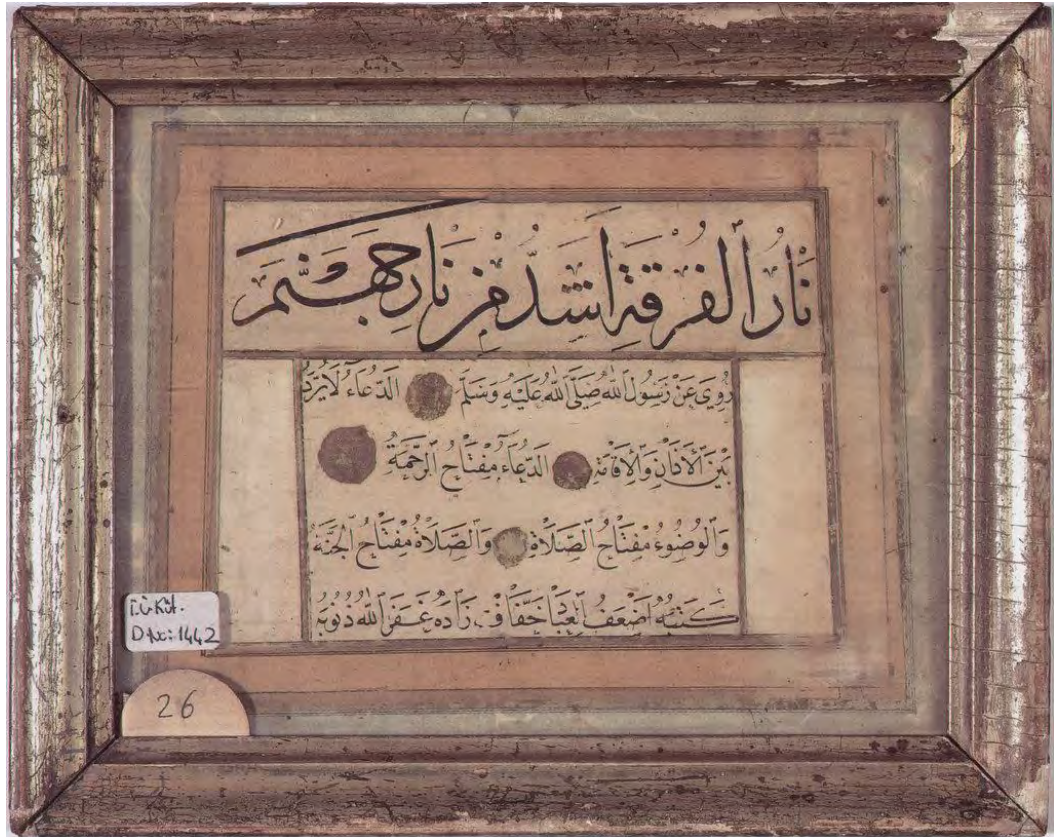 نَارُ الْفُرْقَةِ اَشَدُّ مِنْ نَارِ جَهَنَّمَ
رُوِيَ عَنْ رَسُولِ اللهِ صَلَّى اللهُ عَلَيْهِ وَسَلَّمَ الدُّعَاءُ لَا يُرَدُّ
بَيْنَ الْاَذَانِ وَالْاِقَامَةِ الدُّعَاءُ مِفْتَاحُ الرَّحْمَةِ
وَالْوُضُوءُ مِفْتَاحُ الصَّلَاةِ وَالصَّلَاةُ مِفْتَاحُ الْجَنَّةِ
كَتَبَهُ اَضْعَفُ الْعِبَادِ خَفَّافْ زَادَه غَفَرَ اللهُ ذُنُوبَهُ
İ.Ü.Küt.
D.No:1442
26